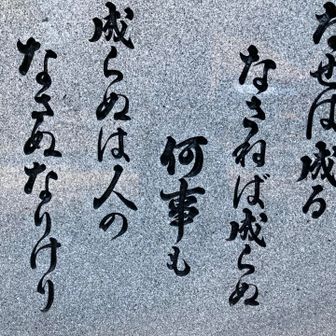 なせば成る
なさねば成らぬ
何事も
成らぬは人の
なさぬなりけり